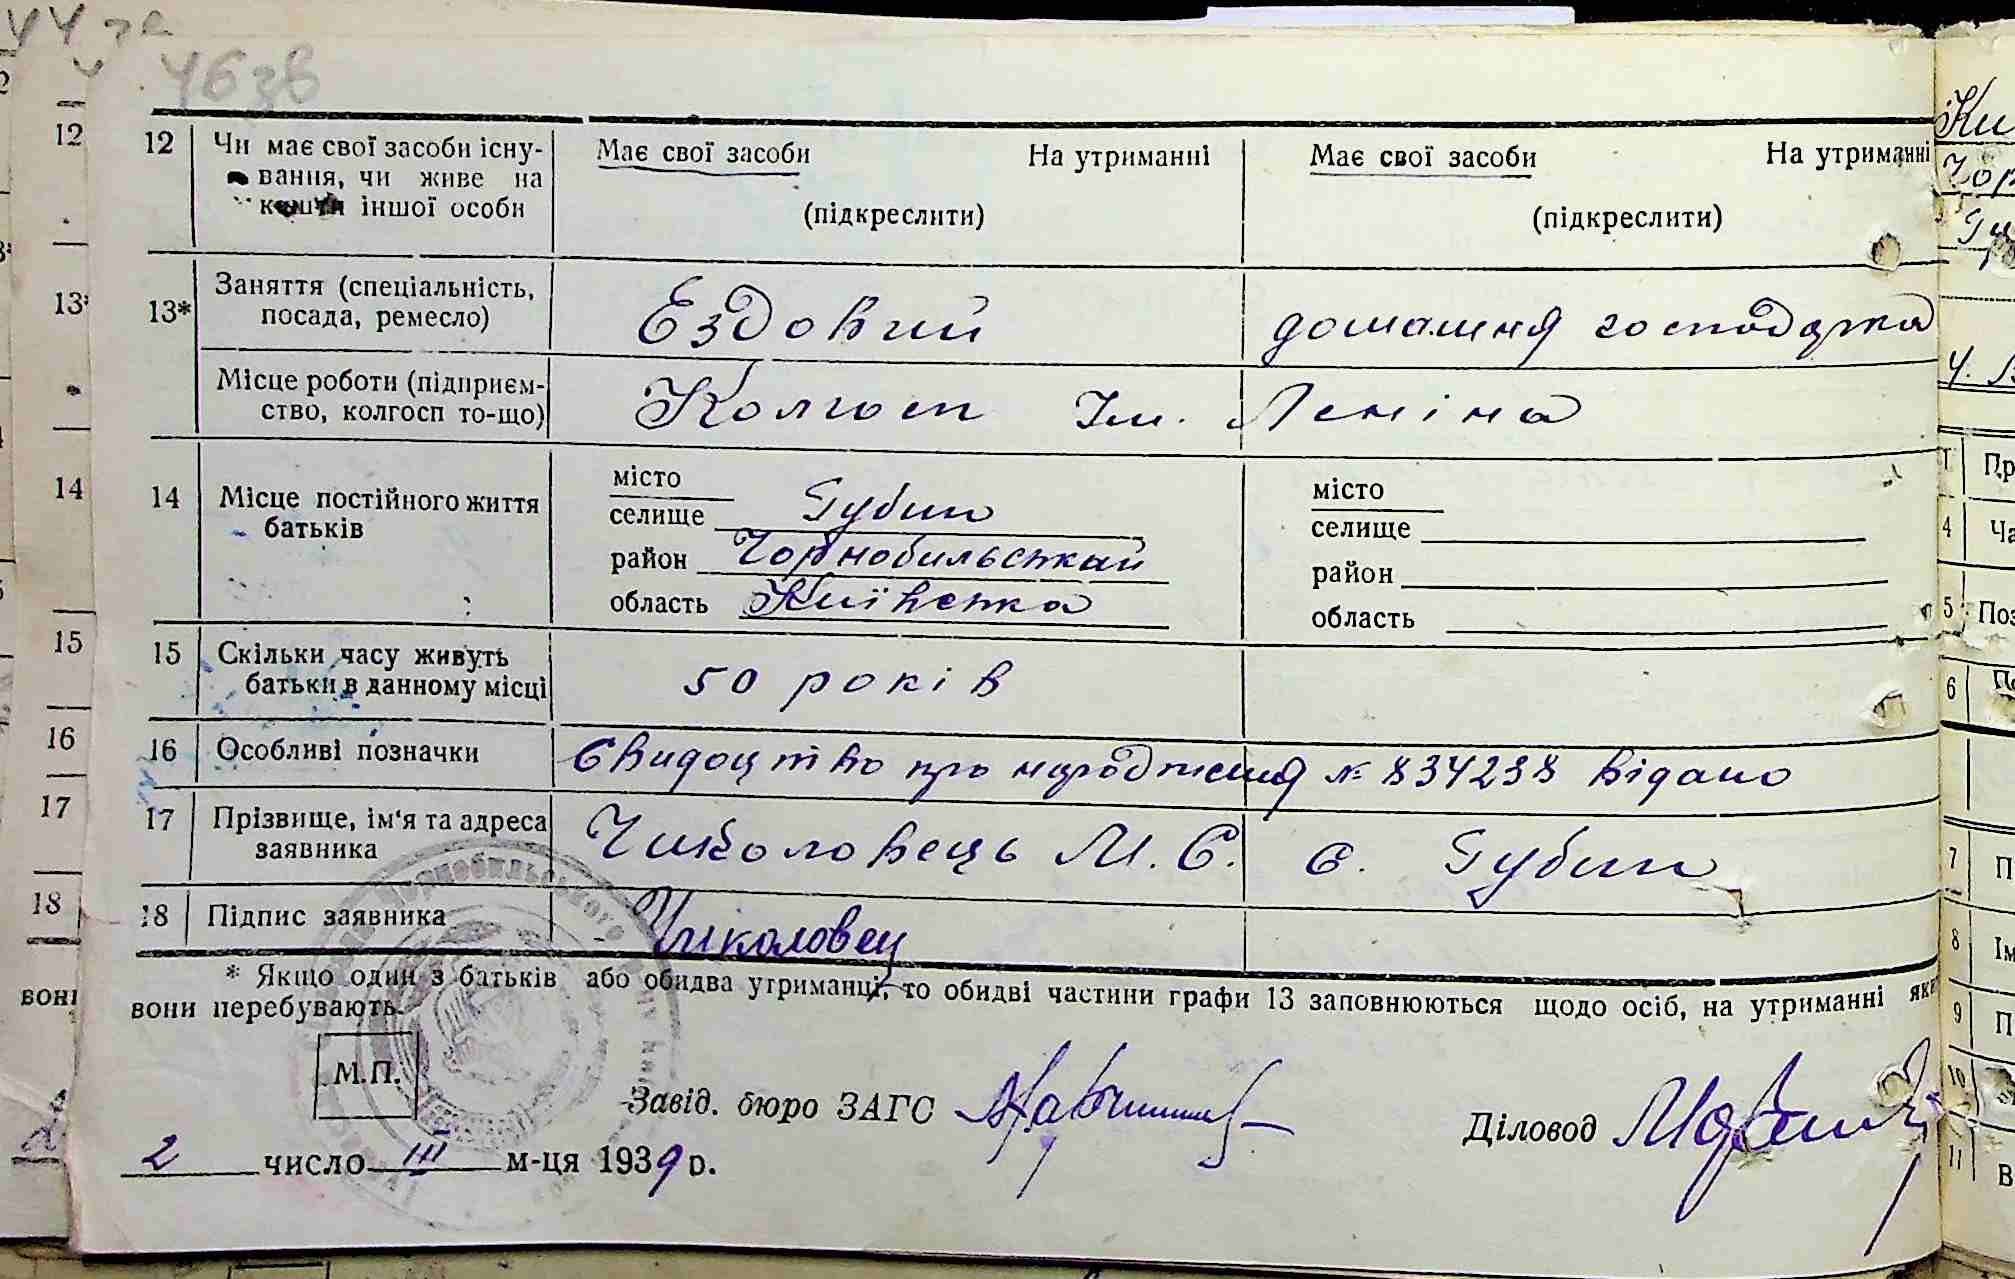 44 зв
46 зв
12 Чи має свої засоби існу- Має свої засоби На утриманні Має свої засоби На утриманні
вання, чи живе на
кошти іншої особи (підкреслити) (підкреслити)
13* Заняття (спеціальність, Ездовий домашня господарка
посада, ремесло)
Місце роботи (підприєм- Колгосп Ім. Леніна
ство, колгосп то-що)
14 Місце постійного життя
батьків
місто місто
селище Губин селище
район Чорнобильський район
область Київська область
15 Скільки часу живуть 50 років
батьки в данному місці
16 Особливі позначки Свидоцтво про народження № 834238 видано
17 Прізвище, ім'я та адреса Чиколовець М. Є. с. Губин
заявника
18 Підпис заявника Чиколовец
* Якщо один з батьків або обидва утриманці, то обидві частини графи 13 заповнюються щодо осіб, на утриманні яких
вони перебувають.
М.П.
Завід. бюро ЗАГС Діловод
2 число III м-ця 1939 р.